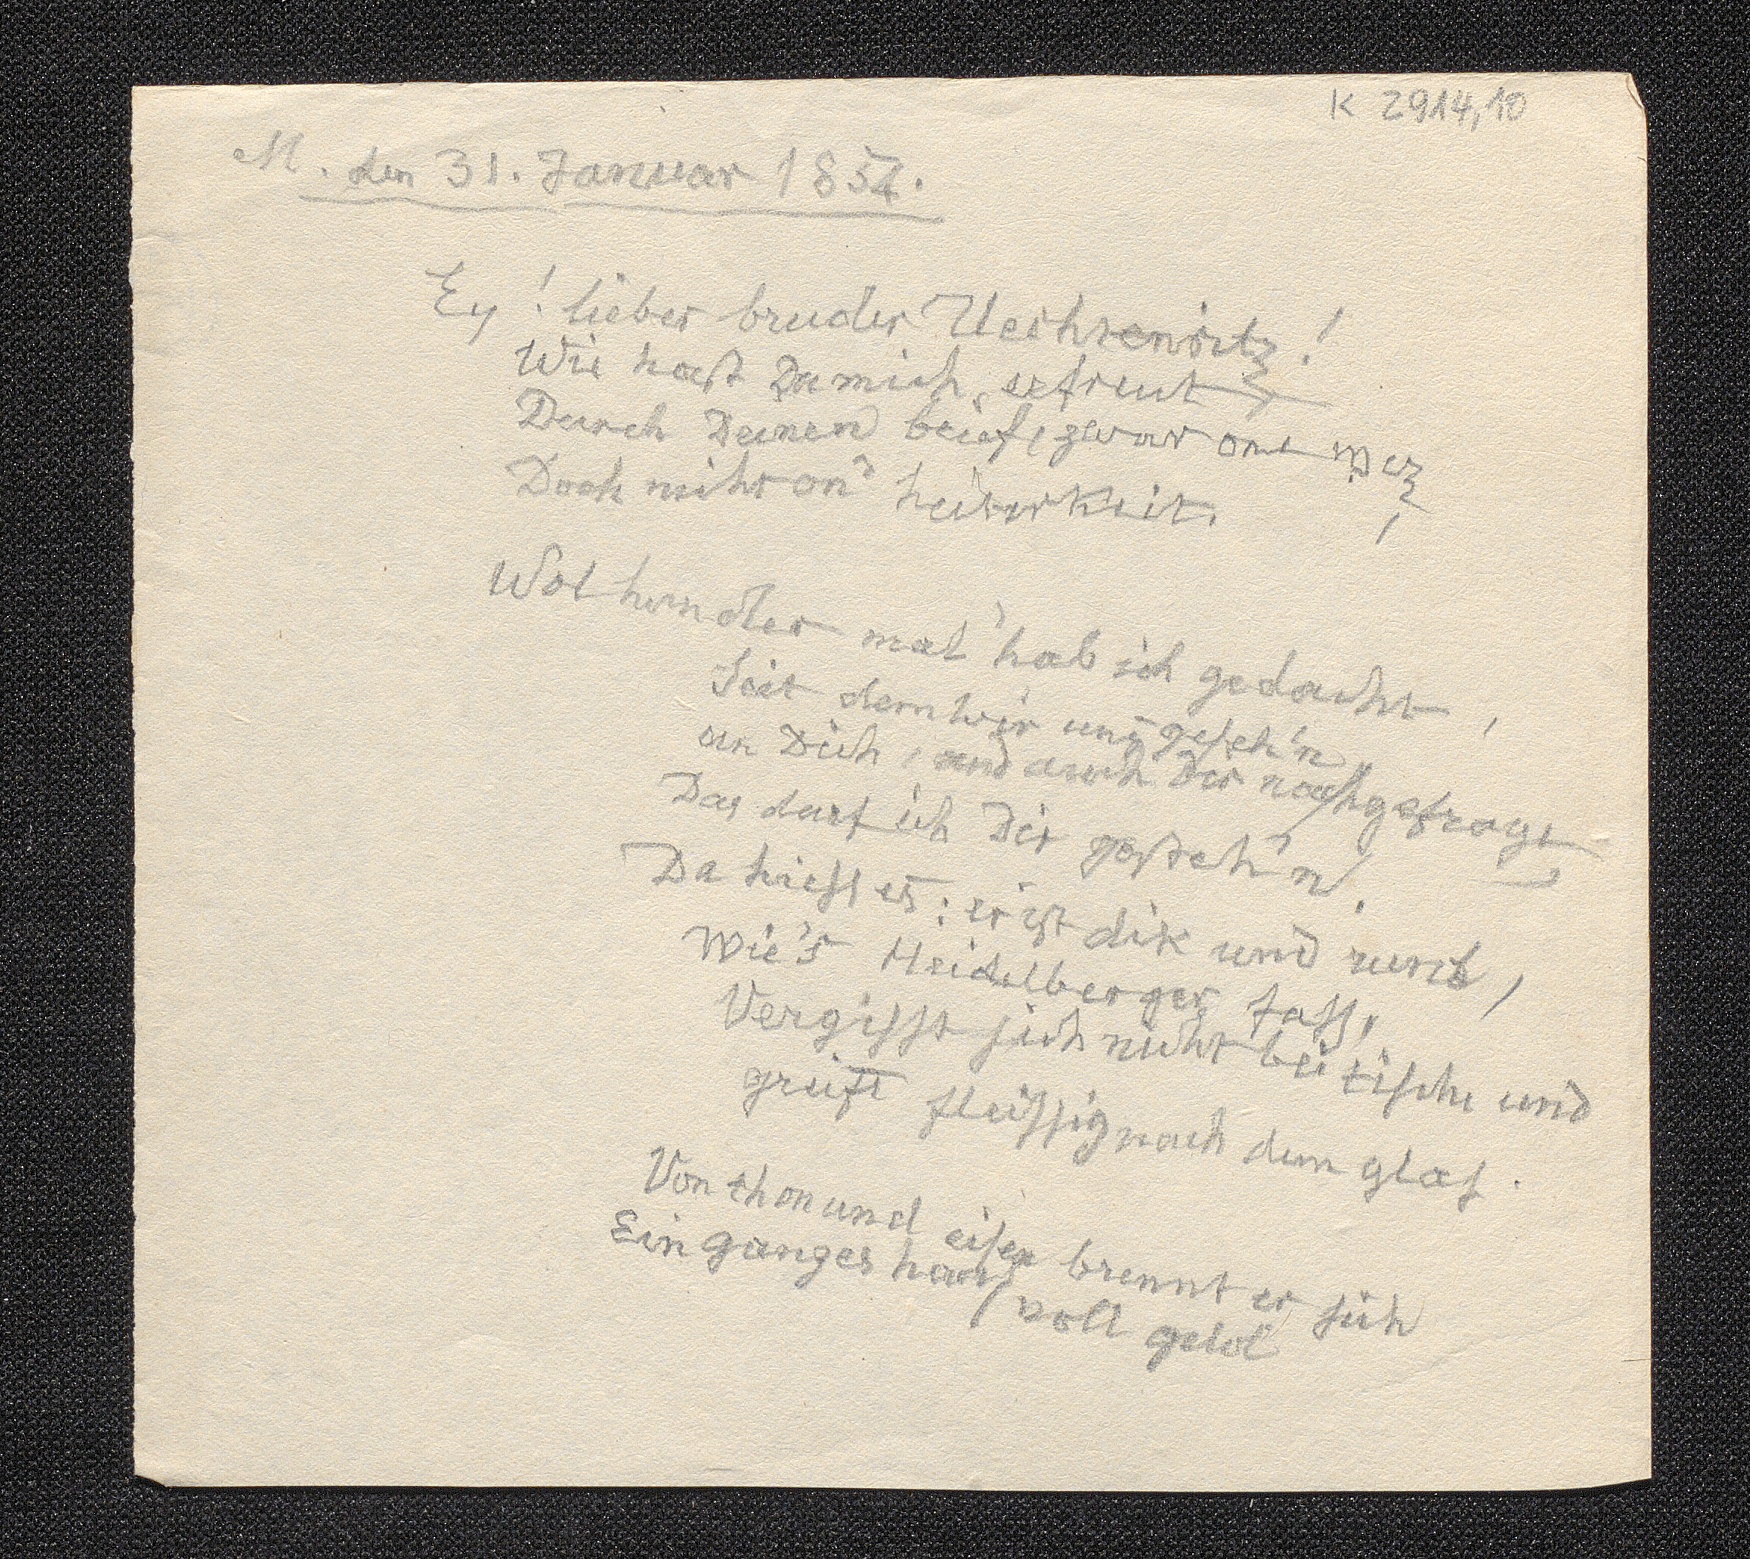 K 2914,10
M. den 31. Januar 1854.
Ey! lieber bruder Uechtenritz!
Wie hast Du mich erfreut
Durch Deinen brief, zwar one witz,
Doch nicht on' heiterkeit.
Wol hundter mal hab ich gedacht,
Seit dem wir uns geseh'n
an Dich, und auch Dir nachgefragt
Das darf ich Dir gesteh'n.
Da hiess es: er ist dik und rund,
Wie's Heidelberger fass,
Vergisst sich nicht bei tische und
greift fleissig nach dem glas.
Von thon und eisen brennt er sich
Ein ganzes haus voll geld